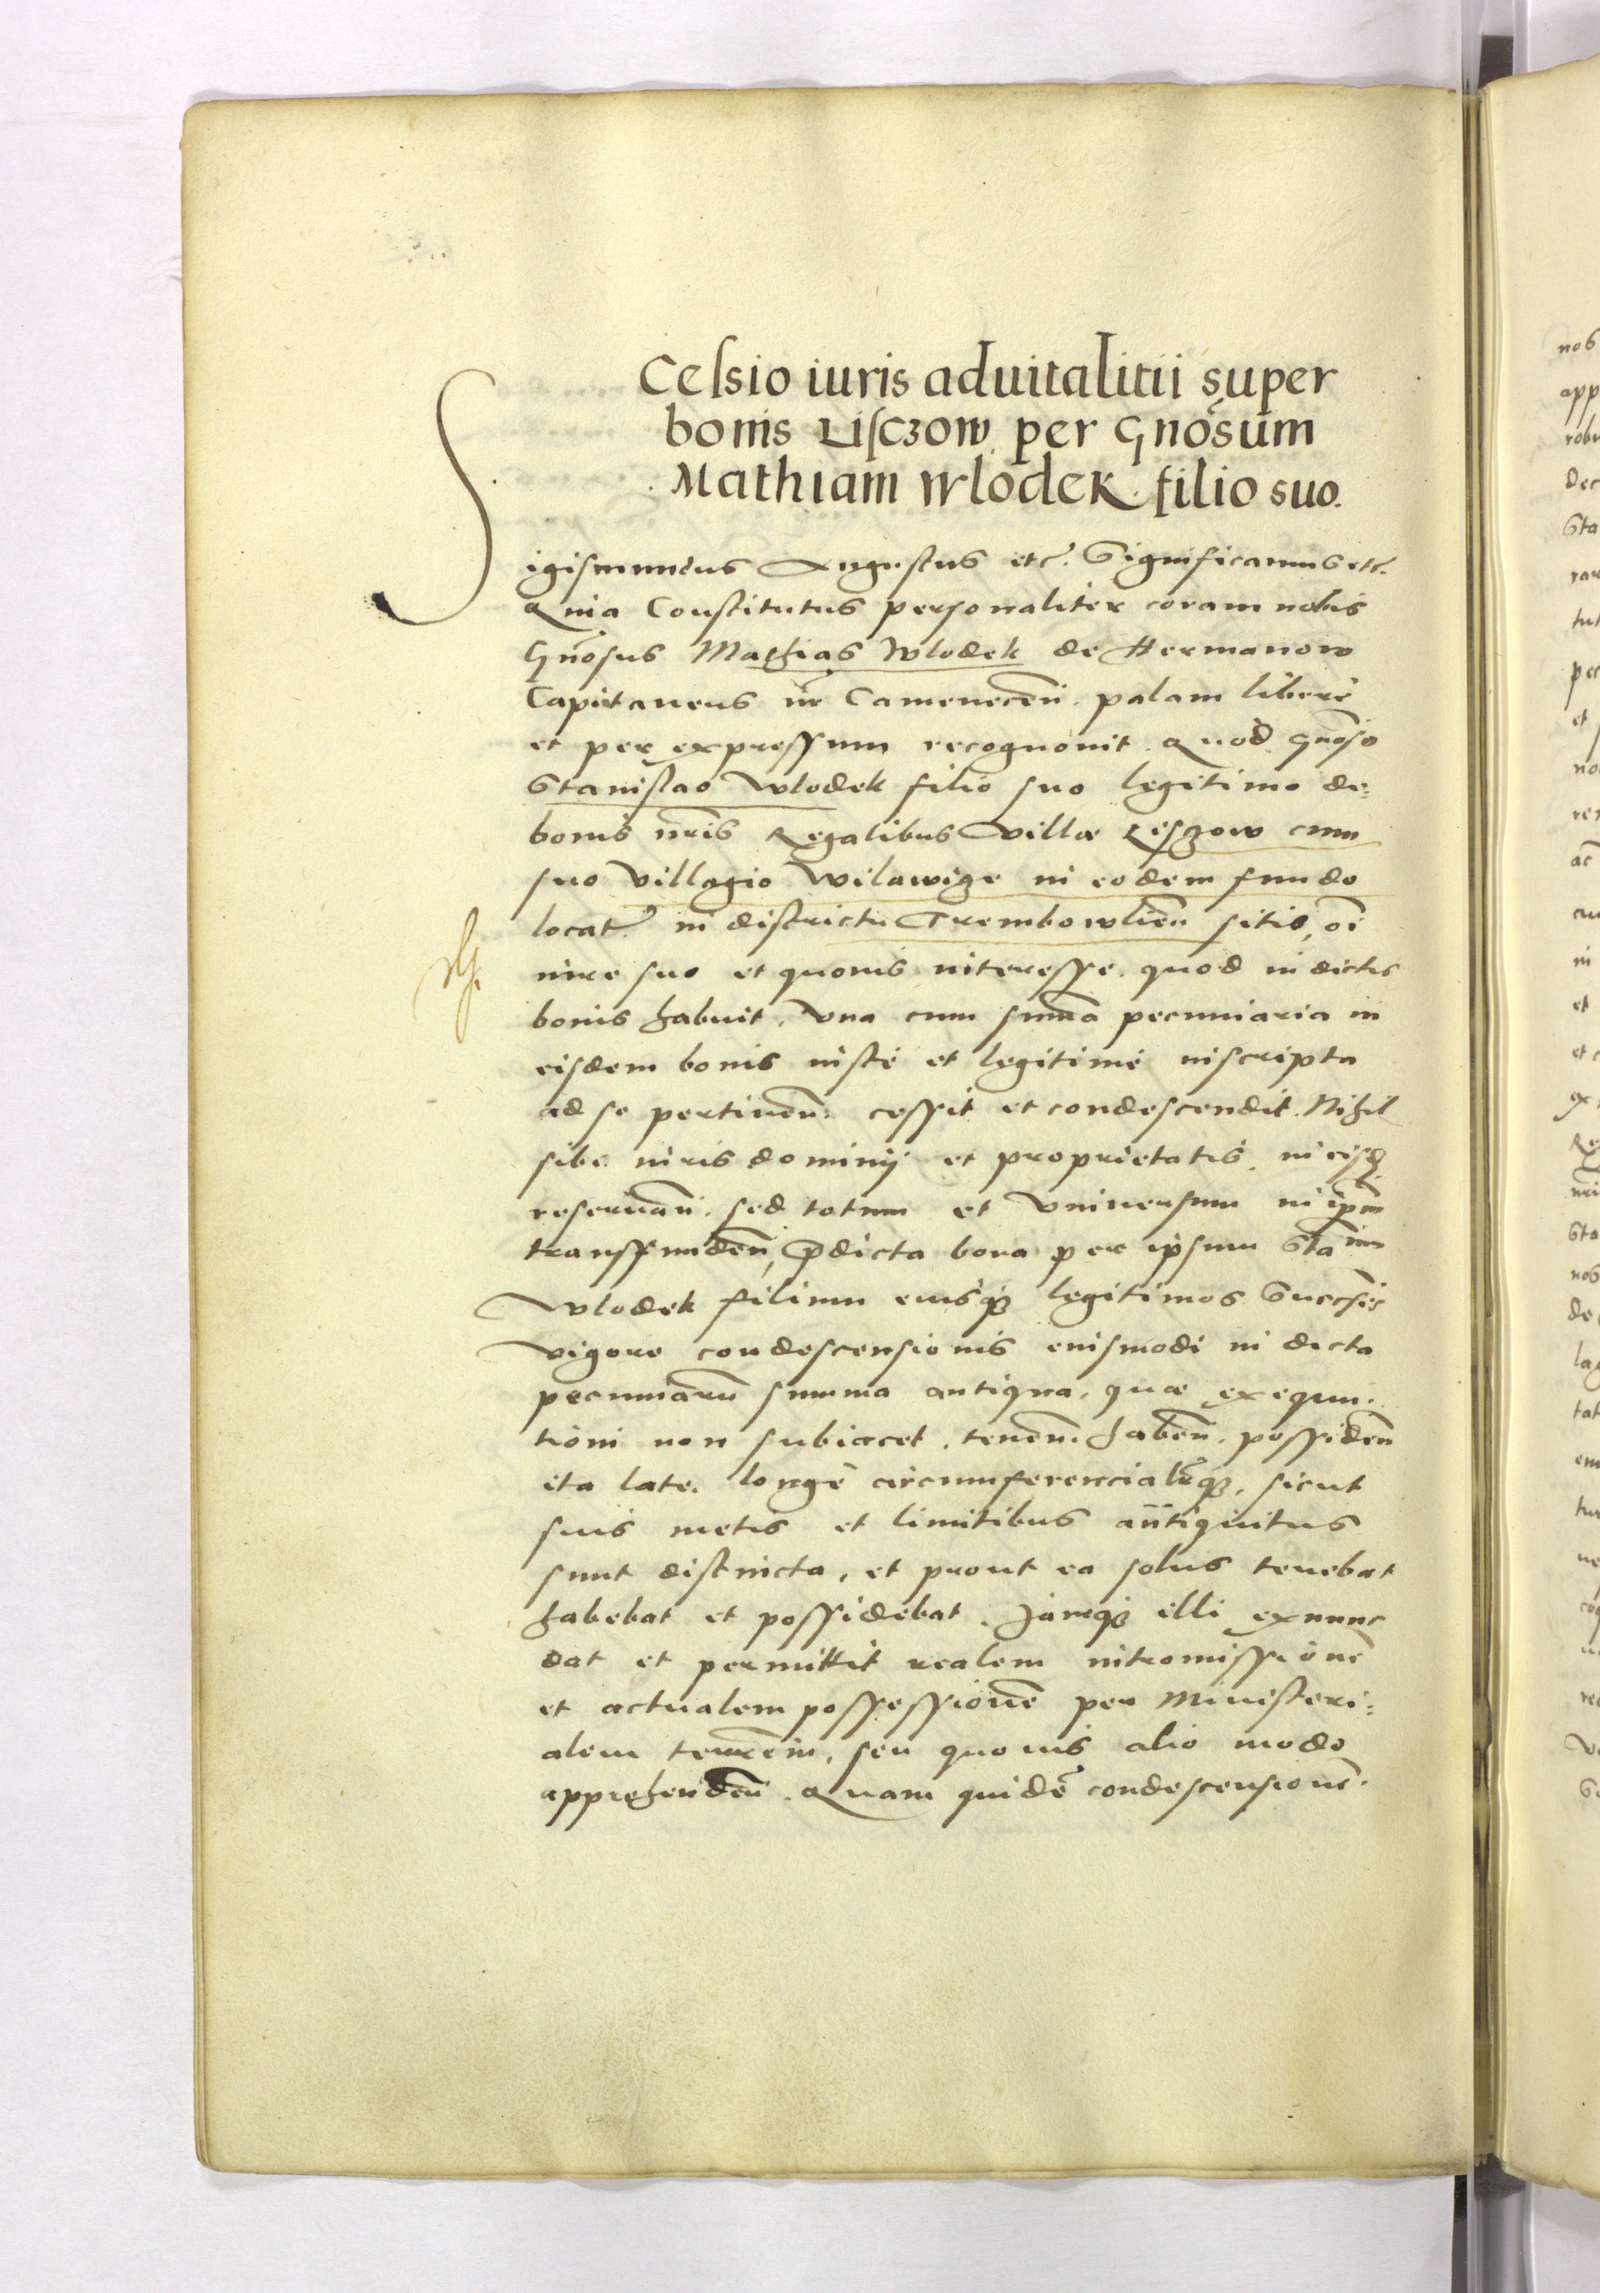 Celsio iuris aduitalitii super
bonis Lisczow per Gnosum
Mathiam Wlodek filio suo.
Sigismundus Augustus etc. Significamus etc.
Quia Constitutus personaliter coram nobis
Gnosus Mathias Wlodek de Hermanow
Capitaneus nr Camenecen. palam liberè
et per expressum recognouit. Quod gnoso
Stanislao Wlodek filio suo legitimo de
bonis nris Regalibus Villæ Liszow cum
suo Villagio Wilawige in eodem fundo
locat. in districtu Trembowlien sitis, oi
iure suo et quouis interesse. quod in dictis
bonis habuit, Vna cum suma pecuniaria in
eisdem bonis iuste et legitime inscripta
ad se pertinen. cessit et condescendit. Nihil
sibi iuris dominij et proprietatis in eisd
reseruan. sed totum et Vniuersum in ipm
transfunden, Pdicta bona per ipsum Sta
Wlodek filium eiusq legitimos Succsēs
vigore condescensionis eiusmodi in dicta
pecuniaru summa antiqua, quæ exequu-
tioni non subiacet, tenen. haben. possiden
ita late. longè circumferencialrq, sicut
suis metis et limitibus antiquitus
sunt distincta, et prout ea solus tenebat
habebat et possidebat. Jamq illi exnunc
dat et permittit realem intromissione
et actualem possessione per Ministeri-
alem terrem, seu quouis alio modo
apprehenden. Quam quide condescensione.
nos
app
robu
dec
Sta
tut
et
no
ac
in
et
et c
ex
Sta
nos
de
tat